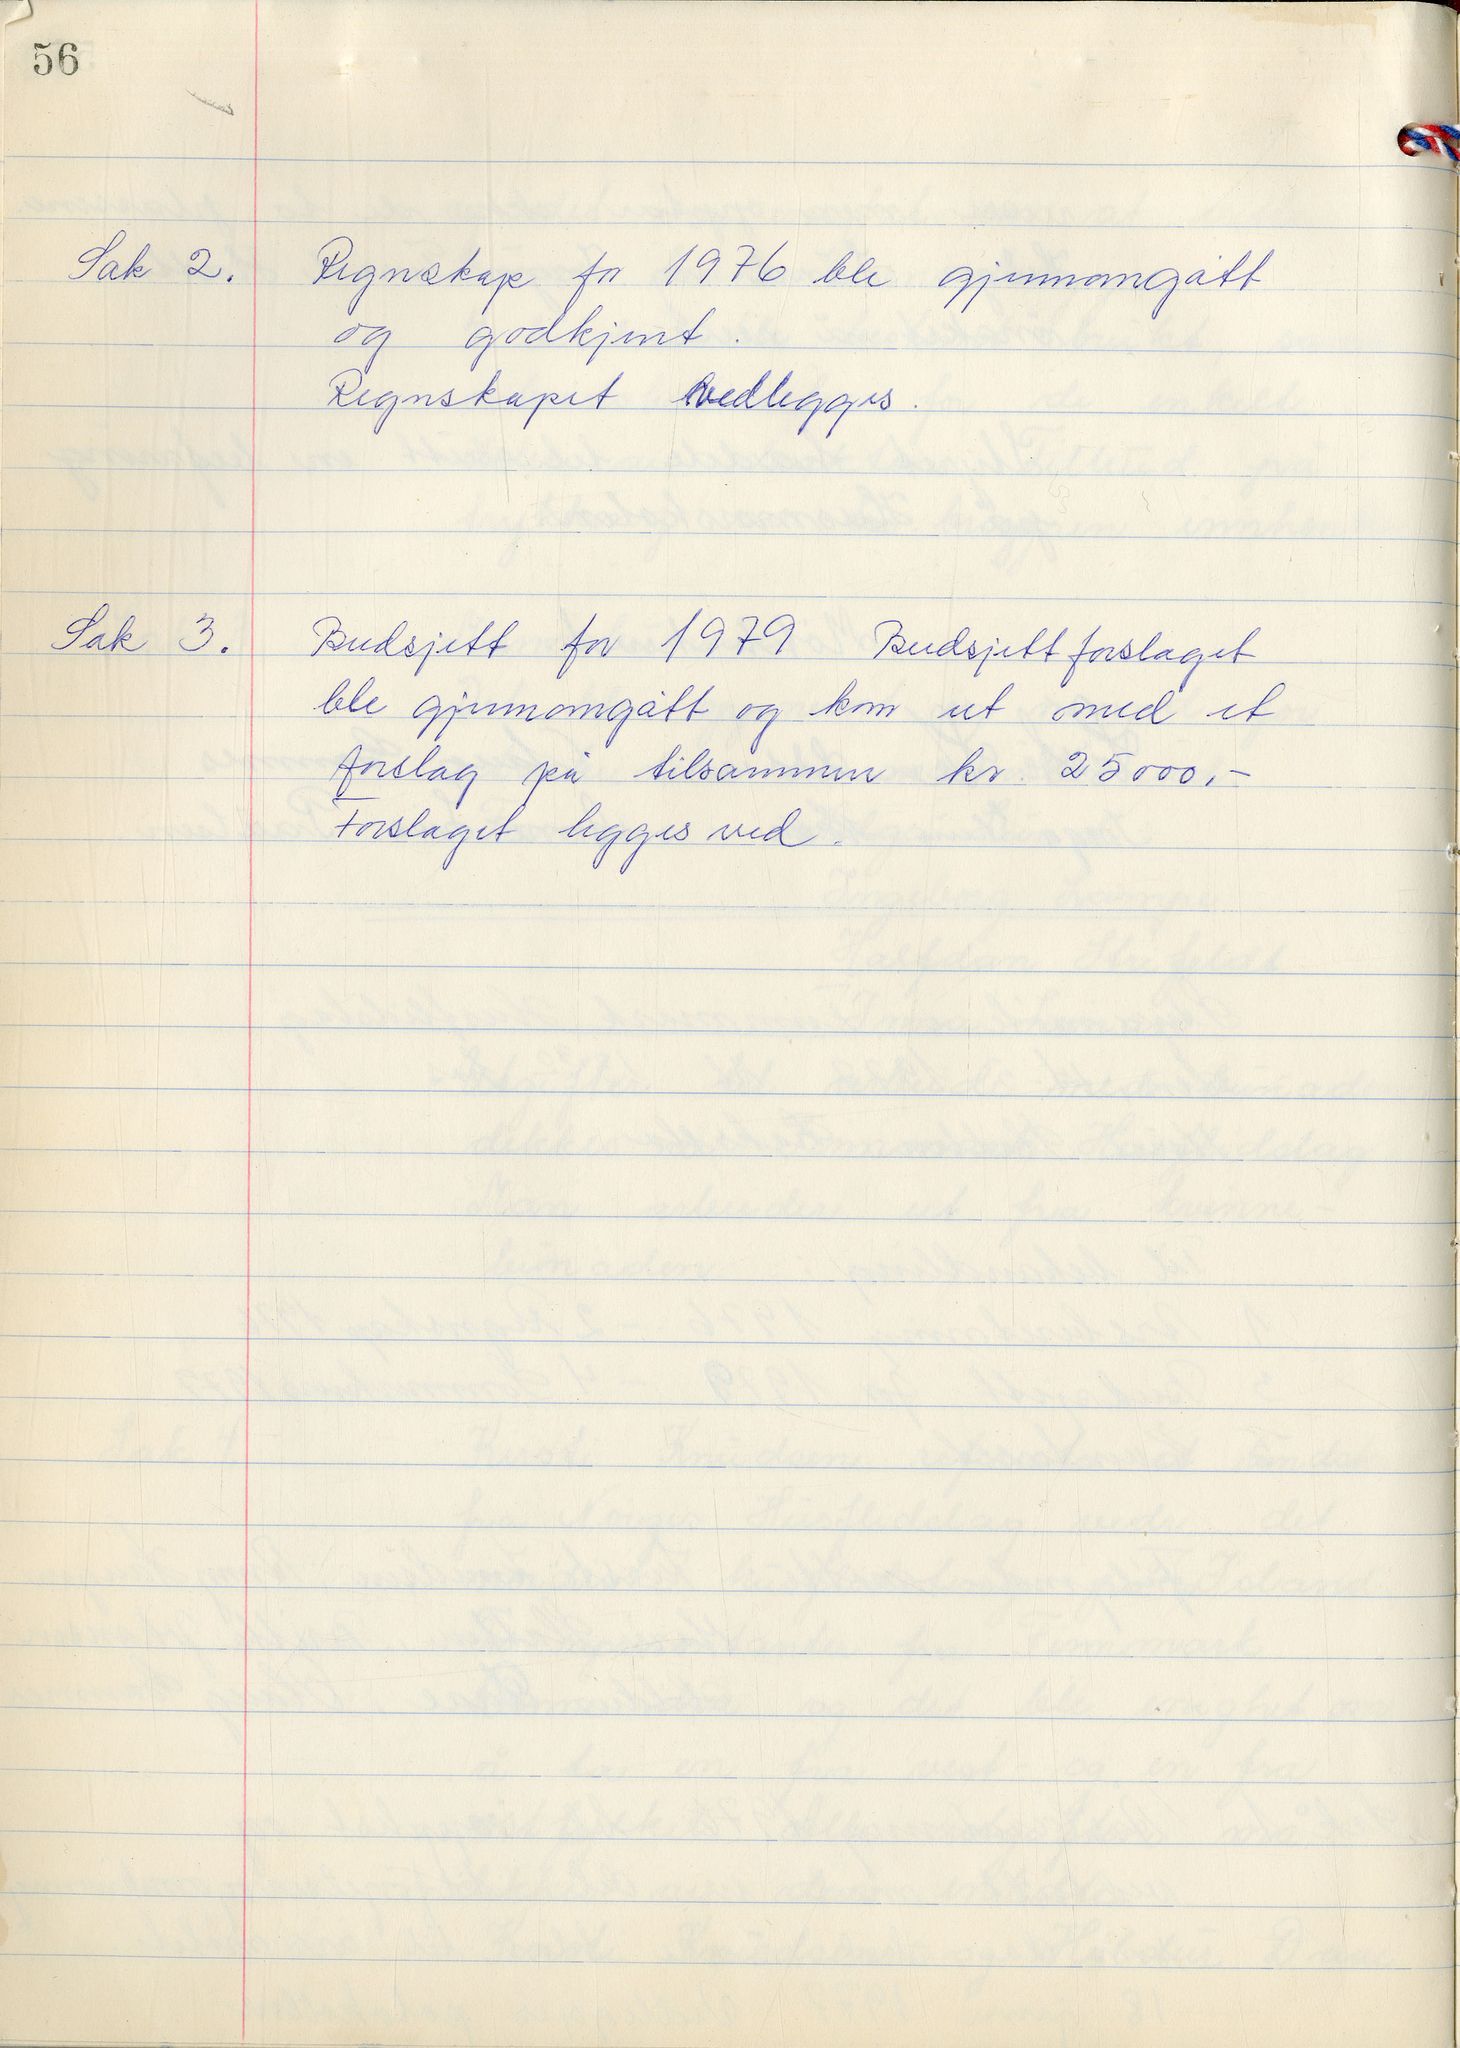 56
Sak 2. Regnskap for 1976 ble gjennomgått
og godkjent.
Regnskapet vedlegges.
Sak 3. Budsjett for 1979 Budsjettforslaget
ble gjennomgått og kom ut med et
forslag på tilsammen kr. 25000,-
Forslaget legges ved.